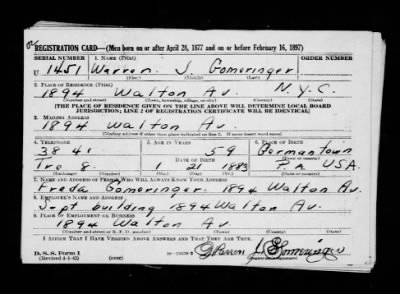 REGISTRATION CARD—(Men born on or after April 28, 1877 and on or before February 16, 1897)
SERIAL NUMBER 1. NAME (Print) ORDER NUMBER
U 1451 Warren J. Gomeringer
(First) (Middle) (Last)
2. PLACE OF RESIDENCE (Print)
1894 Walton Av. N.Y.C.
(Number and street) (Town, township, village, or city) (County) (State)
[THE PLACE OF RESIDENCE GIVEN ON THE LINE ABOVE WILL DETERMINE LOCAL BOARD
JURISDICTION; LINE 2 OF REGISTRATION CERTIFICATE WILL BE IDENTICAL]
3. MAILING ADDRESS
1894 Walton Av.
[Mailing address if other than place indicated on line 2. If same insert word same]
4. TELEPHONE 5. AGE IN YEARS 6. PLACE OF BIRTH
38 41 59 Germantown
DATE OF BIRTH
Tre 8. 1 21 1883 PA USA.
7. NAME AND ADDRESS OF PERSON WHO WILL ALWAYS KNOW YOUR ADDRESS
Freda Gomeringer. 1894 Walton Av.
8. EMPLOYER'S NAME AND ADDRESS
Supt building 1894 Walton Av.
9. PLACE OF EMPLOYMENT OR BUSINESS
1894 Walton Av.
(Number and street or R. F. D. number) (Town) (County) (State)
I AFFIRM THAT I HAVE VERIFIED ABOVE ANSWERS AND THAT THEY ARE TRUE.
D. S. S. Form 1
(Revised 4-1-42) (over)
Warren J. Gomeringer